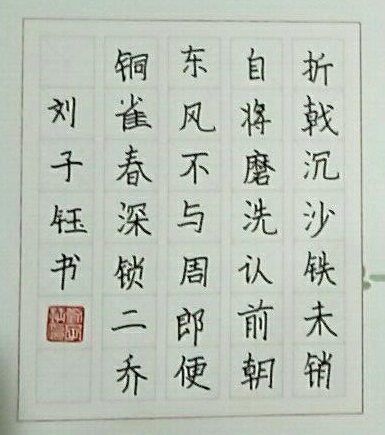 折戟沉沙铁未销
自将磨洗认前朝
东风不与周郎便
铜雀春深锁二乔
刘子钰书